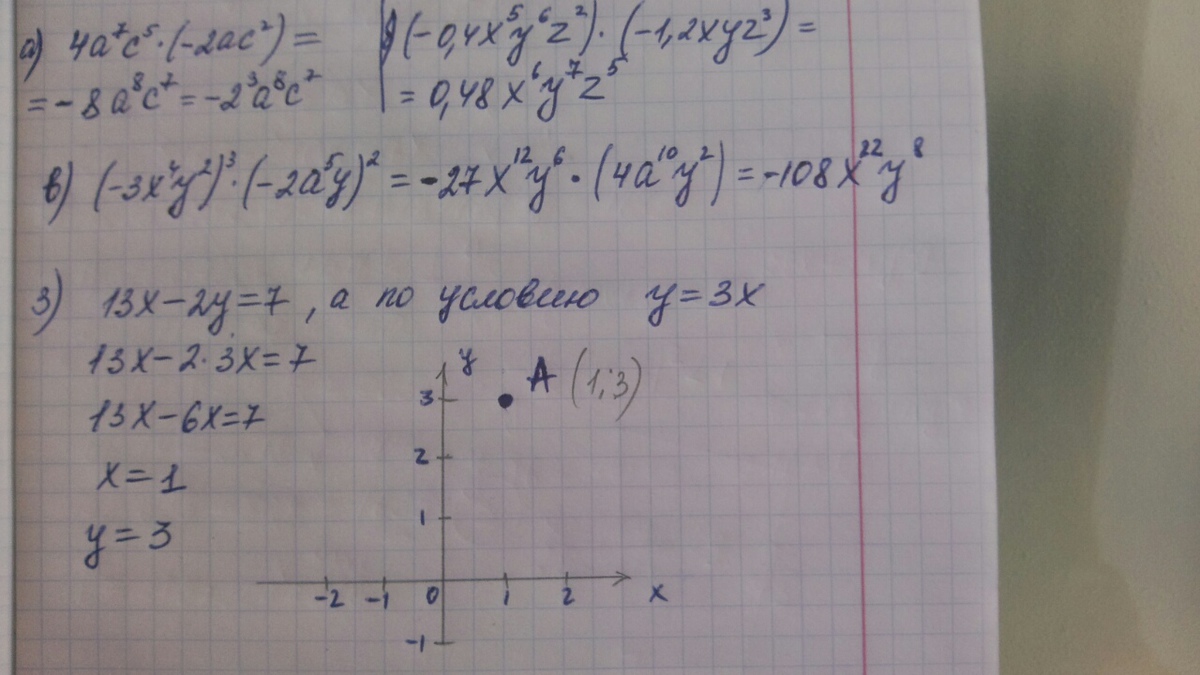 а) 4a⁷c⁵·(-2ac²) =
= -8a⁸c⁷ = -2³a⁸c⁷
б) (-0,4x⁵y⁶z²)·(-1,2xyz³) =
= 0,48x⁶y⁷z⁵
в) (-3x⁴y²)³·(-2a⁵y)² = -27x¹²y⁶·(4a¹⁰y²) = -108x²²y⁸
3) 13x-2y=7, а по условию y=3x
13x-2·3x=7
13x-6x=7
x=1
y=3
y
A (1;3)
3
2
1
-2 -1 0 1 2 x
-1